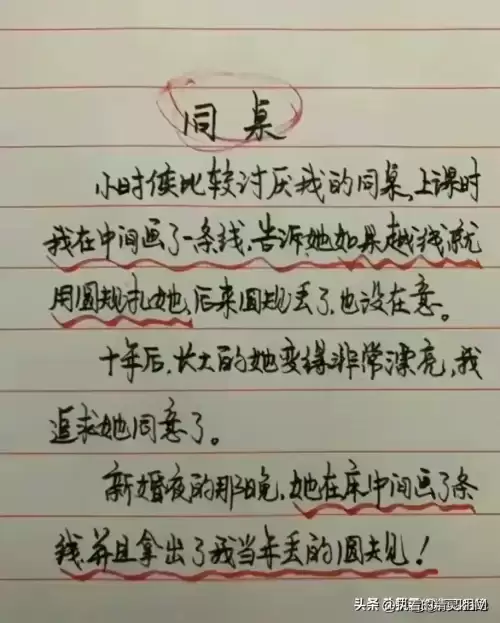 同桌
小时侯比较讨厌我的同桌,上课时
我在中间画了一条线,告诉她如果越线就
用圆规扎她,后来圆规丢了,也没在意。
十年后,长大的她变得非常漂亮,我
追求她同意了。
新婚夜的那晚,她在床中间画了条
线,并且拿出了我当年丢的圆规!
头条